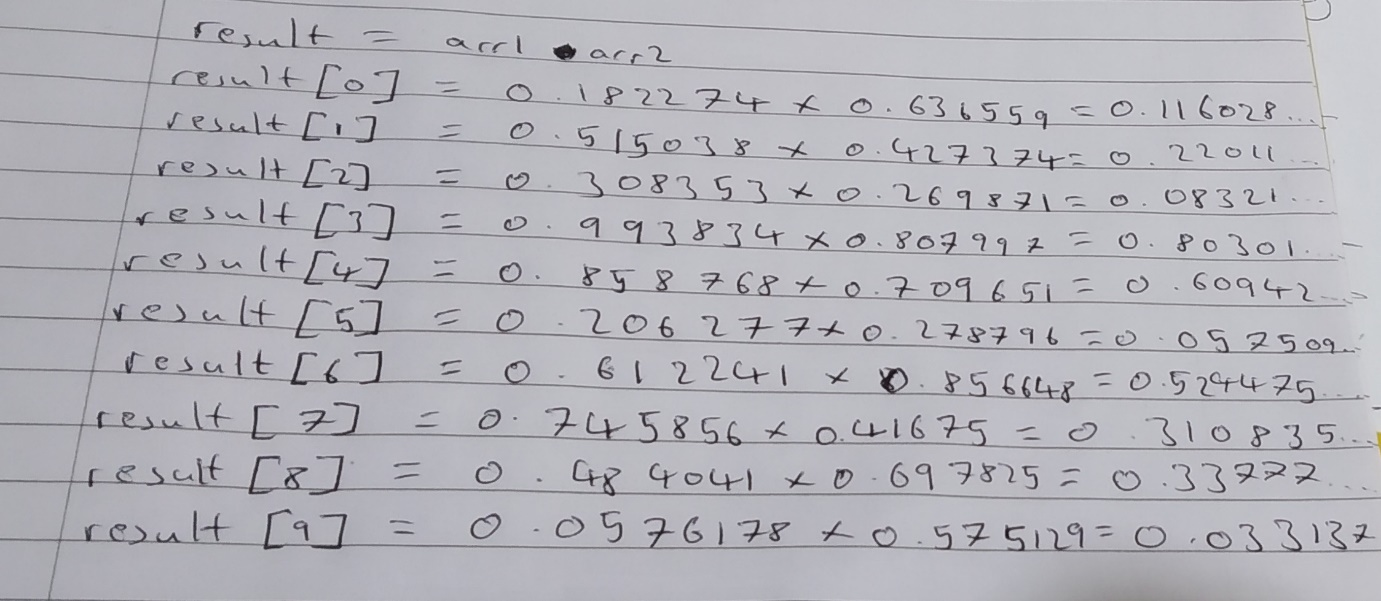 result = arr1 • arr2
result [0] = 0.182274 × 0.636559 = 0.116028...
result [1] = 0.515038 × 0.427374 = 0.22011...
result [2] = 0.308353 × 0.269871 = 0.08321...
result [3] = 0.993834 × 0.807997 = 0.80301...
result [4] = 0.858768 × 0.709651 = 0.60942...
result [5] = 0.206277 × 0.278796 = 0.057509...
result [6] = 0.612241 × 0.856648 = 0.524475...
result [7] = 0.745856 × 0.41675 = 0.310835...
result [8] = 0.484041 × 0.697825 = 0.33777...
result [9] = 0.0576178 × 0.575129 = 0.033137